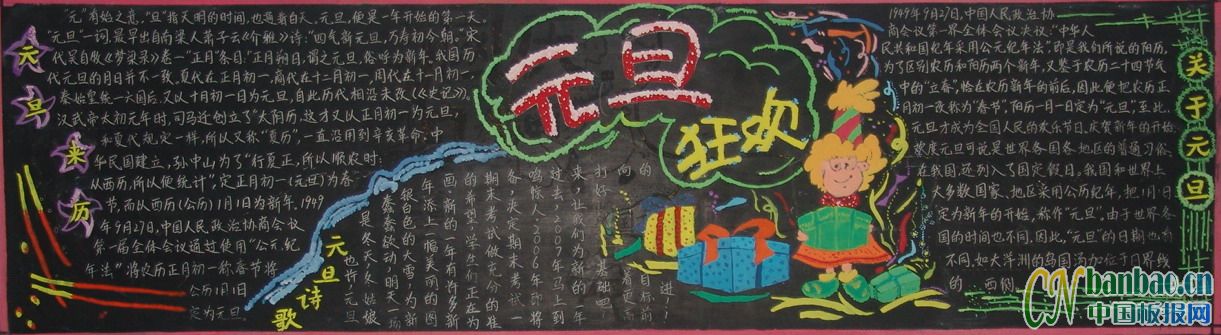 元旦来历
"元"有始之意,"旦"指天明的时间,也通指白天。元旦,便是一年开始的第一天。
"元旦"一词,最早出自南梁人萧子云《介雅》诗:"四气新元旦,万寿初今朝。"宋
代吴自牧《梦梁录》卷一"正月"条目:"正月朔日,谓之元旦,俗呼为新年。我国历
代元旦的月日并不一致。夏代在正月初一,商代在十二月初一,周代在十一月初一,
秦始皇统一六国后,又以十月初一日为元旦,自此历代相沿未改(《史记》)。
汉武帝太初元年时,司马迁创立了"太阴历,这才又以正月初一为元旦,
和夏代规定一样,所以又称"夏历",一直沿用到辛亥革命。中
华民国建立,孙中山为了"行夏正,所以顺农时;
从西历,所以便统计",定正月初一(元旦)为春
节,而以西历(公历)1月1日为新年,1949
年9月27日,中国人民政治协商会议
第一届全体会议通过使用"公元纪
年法"将农历正月初一称春节将
公历1月1日
定为元旦
元旦
狂欢
元旦诗歌
也许元旦
是冬天冬姑娘
蠢蠢欲动,明天一场
银白色的大雪,为新
年添上一幅美丽的图
画,新的一年有许多新
的希望,学生们正在为
期末考试做充分的准
备,决定期末考试一
鸣惊人,2006年即将
过去,2007年马上到
来,让我们为新的一年
打好
基础吧!
向
也有更新
的
目标前
进!
关于元旦
1949年9月27日,中国人民政治协
商会议第一届全体会议决议:"中华人
民共和国纪年采用公元纪年法"即是我们所说的阳历,
为了区别农历和阳历两个新年,又鉴于农历二十四节气
中的"立春"恰在农历新年的前后,因此便把农历正
月初一改称为"春节",阳历一月一日定为"元旦",至此,
元旦才成为全国人民的欢乐节日。庆贺新年的开始.
欢度元旦可说是世界各国各地区的普通习俗、
在我国,还列入了固定假日,我国和世界上
大多数国家、地区采用公历纪年,把1月1日
定为新年的开始,称作"元旦"。由于世界各
国的时间也不同,因此,"元旦"的日期也有
不同,如大洋洲的岛国汤加位于日界线
的西侧
CN banbao.cn
中国板报网